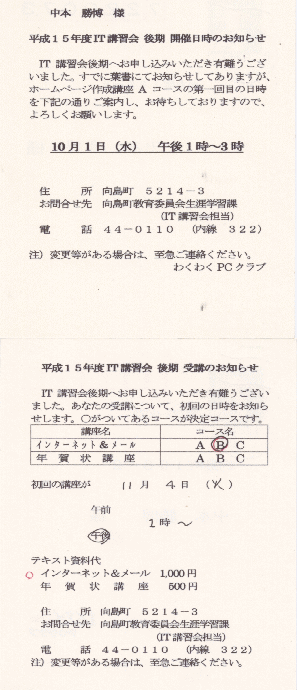 中本 勝博 様
平成15年度IT講習会 後期 開催日時のお知らせ
IT 講習会後期へお申し込みいただき有難うござ
いました。すでに葉書にてお知らせしてありますが、
ホームページ作成講座 A コースの第一回目の日時
を下記の通りご案内し、お待ちしておりますので、
よろしくお願いします。
10月1日（水） 午後1時～3時
住 所 向島町 5214－3
お問合せ先 向島町教育委員会生涯学習課
（IT講習会担当）
電 話 44－0110 （内線 322）
注）変更等がある場合は、至急ご連絡ください。
わくわくPCクラブ
平成15年度IT講習会 後期 受講のお知らせ
IT 講習会後期へお申し込みいただき有難うござい
ました。あなたの受講について、初回の日時をお知ら
せします。○がついてあるコースが決定コースです。
講座名 コース名
インターネット＆メール A B C
年 賀 状 講 座 A B C
初回の講座が 11 月 4 日 （火）
午前
2 時 ～
午後
テキスト資料代
○ インターネット＆メール 1,000円
年 賀 状 講 座 500円
住 所 向島町 5214－3
お問合せ先 向島町教育委員会生涯学習課
（IT講習会担当）
電 話 44－0110 （内線 322）
注）変更等がある場合は、至急ご連絡ください。